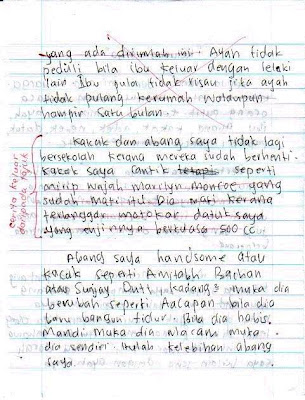 yang ada dirumah ini. Ayah tidak
peduli bila ibu keluar dengan lelaki
lain. Ibu pula tidak risau jika ayah
tidak pulang kerumah walaupun
hampir satu bulan.
Kakak dan abang saya tidak lagi
bersekolah kerana mereka sudah berhenti.
Kakak saya cantik tetapi seperti
mirip wajah marilyn monroe yang
sudah mati itu. Dia mati kerana
terlanggar motokar datuk saya
yang enjinnya berkuasa 500 CC
cerita keluar
daripada tajuk
Abang saya handsome atau
kacak seperti Amitabh Bachan
atau Sunjay Dutt. Kadang2 muka dia
berubah seperti Aacapan bila dia
baru bangun tidur. Bila dia habis
mandi muka dia macam muka
dia sendiri. Itulah kelebihan abang
saya.